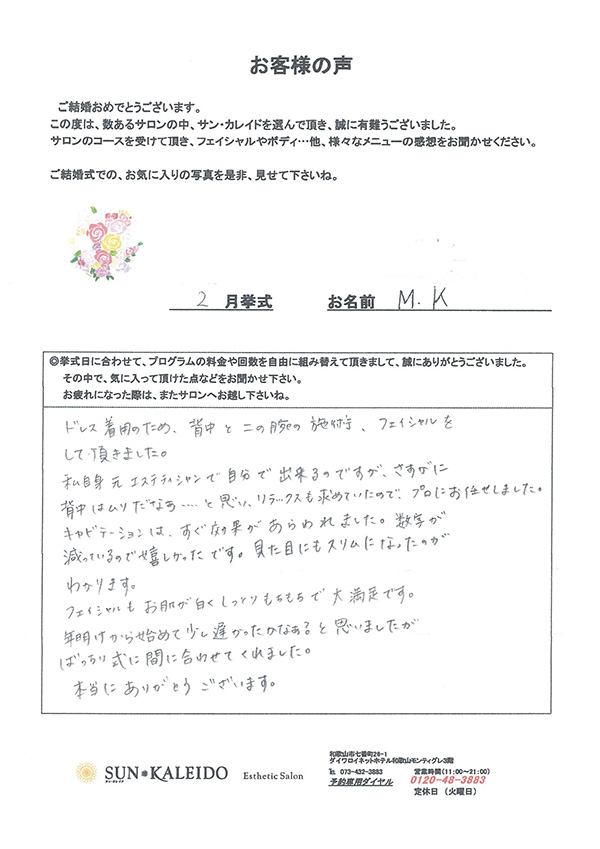 お客様の声
ご結婚おめでとうございます。
この度は、数あるサロンの中、サン・カレイドを選んで頂き、誠に有難うございました。
サロンのコースを受けて頂き、フェイシャルやボディ…他、様々なメニューの感想をお聞かせください。
ご結婚式での、お気に入りの写真を是非、見せて下さいね。
2 月挙式 お名前 M.K
◎挙式日に合わせて、プログラムの料金や回数を自由に組み替えて頂きまして、誠にありがとうございました。
その中で、気に入って頂けた点などをお聞かせ下さい。
お疲れになった際は、またサロンへお越し下さいね。
ドレス着用のため、背中と二の腕の施術、フェイシャルを
して頂きました。
私自身元エステティシャンで自分で出来るのですが、さすがに
背中はムリだなぁ…‥と思い、リラックスも求めていたので、プロにお任せしました。
キャビテーションは、すぐ効果があらわれました。数字が
減っているので嬉しかったです。見た目にもスリムになったのが
わかります。
フェイシャルもお肌が白くしっとりもちもちで大満足です。
年明けから始めて少し遅かったかなぁ?と思いましたが
ばっちり式に間に合わせてくれました。
本当にありがとうございます。
SUN KALEIDO Esthetic Salon
サン・カレイド
和歌山市七番町26-1
ダイワロイネットホテル和歌山モンティグレ3階
℡ 073-432-3883 営業時間(11:00~21:00)
予約専用ダイヤル 0120-48-3883
定休日 (火曜日)